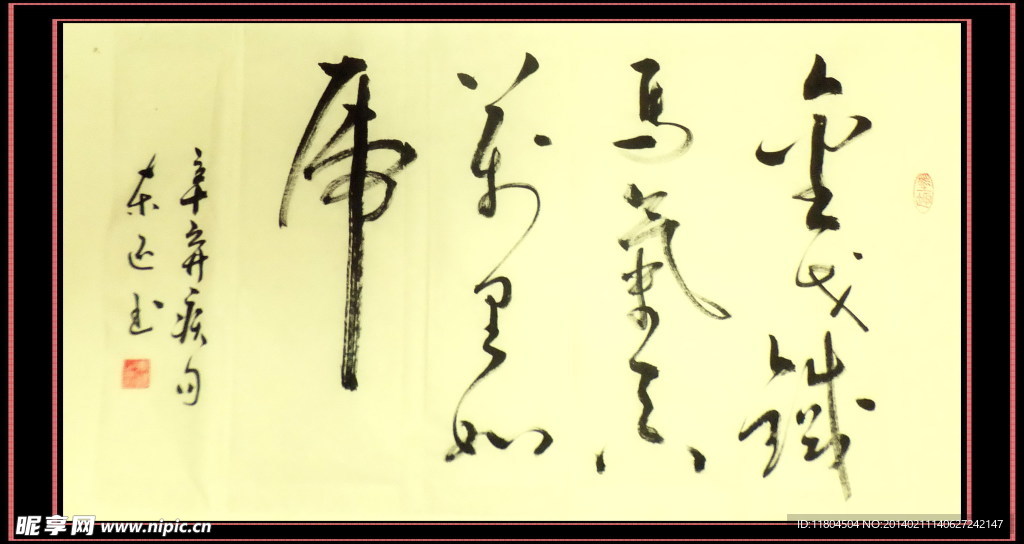 金戈鐵
馬氣吞
萬里如
虎
辛弃疾句
东 书
昵享网 www.nipic.cn
ID:11804504 NO:20140211140627242147